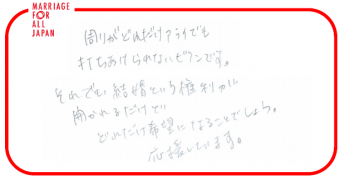 MARRIAGE
FOR
ALL
JAPAN
周りがどれだけアライでも
打ちあけられないゲランです。
それでも結婚という権利がに
開かれるだけで
どれだけ希望になることでしょう。
応援しています。